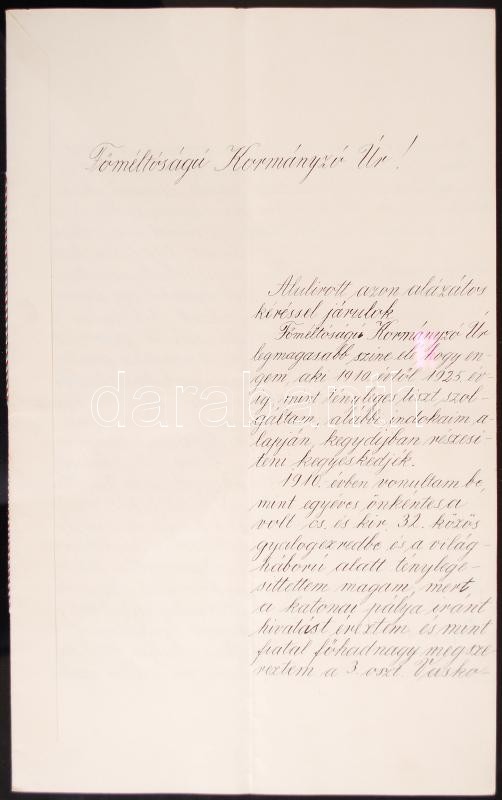 Főméltóságú Kormányzó Úr!
Alulirott azon alázatos
kéréssel járulok
Főméltóságú Kormányzó Úr
legmagasabb szine elé, hogy en-
gem, aki 1910. évtől 1925. év-
ig, mint tényleges tiszt szol-
gáltam, alábbi indokaim a-
lapján, kegydijban részesi-
teni kegyeskedjék.
1910. évben vonultam be,
mint egyéves önkéntes a
volt cs. és kir. 32. közös
gyalogezredbe és a világ-
háború alatt ténylege-
sittettem magam, mert
a katonai pálya iránt
hivatást éreztem és mint
fiatal főhadnagy megsze-
reztem a 3. oszt. Vasko-
darabanth